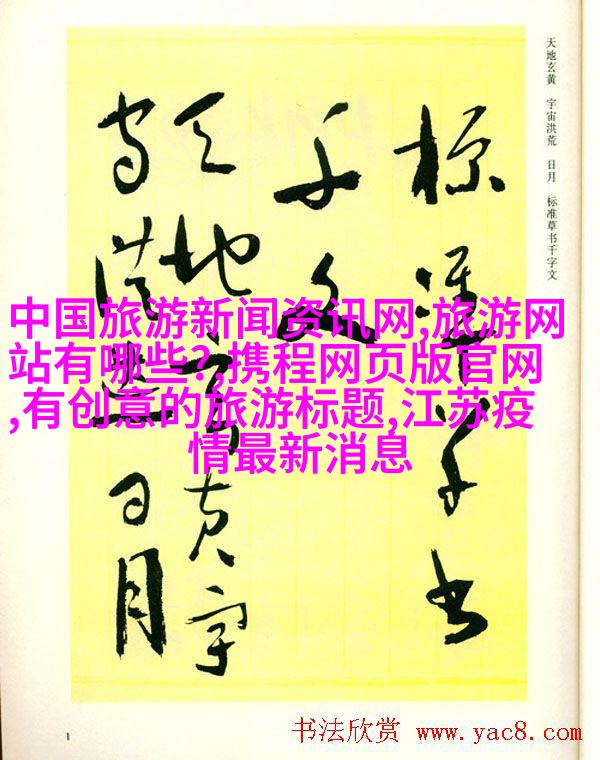 天地玄黄 宇宙洪荒 日月 标准草书千字文
标准草书
千字文
天地玄黄宇
宙洪荒日月
中国旅游新闻资讯网,旅游网
站有哪些?,携程网页版官网
,有创意的旅游标题,江苏疫
情最新消息
1
书法欣赏 www.yac8.com